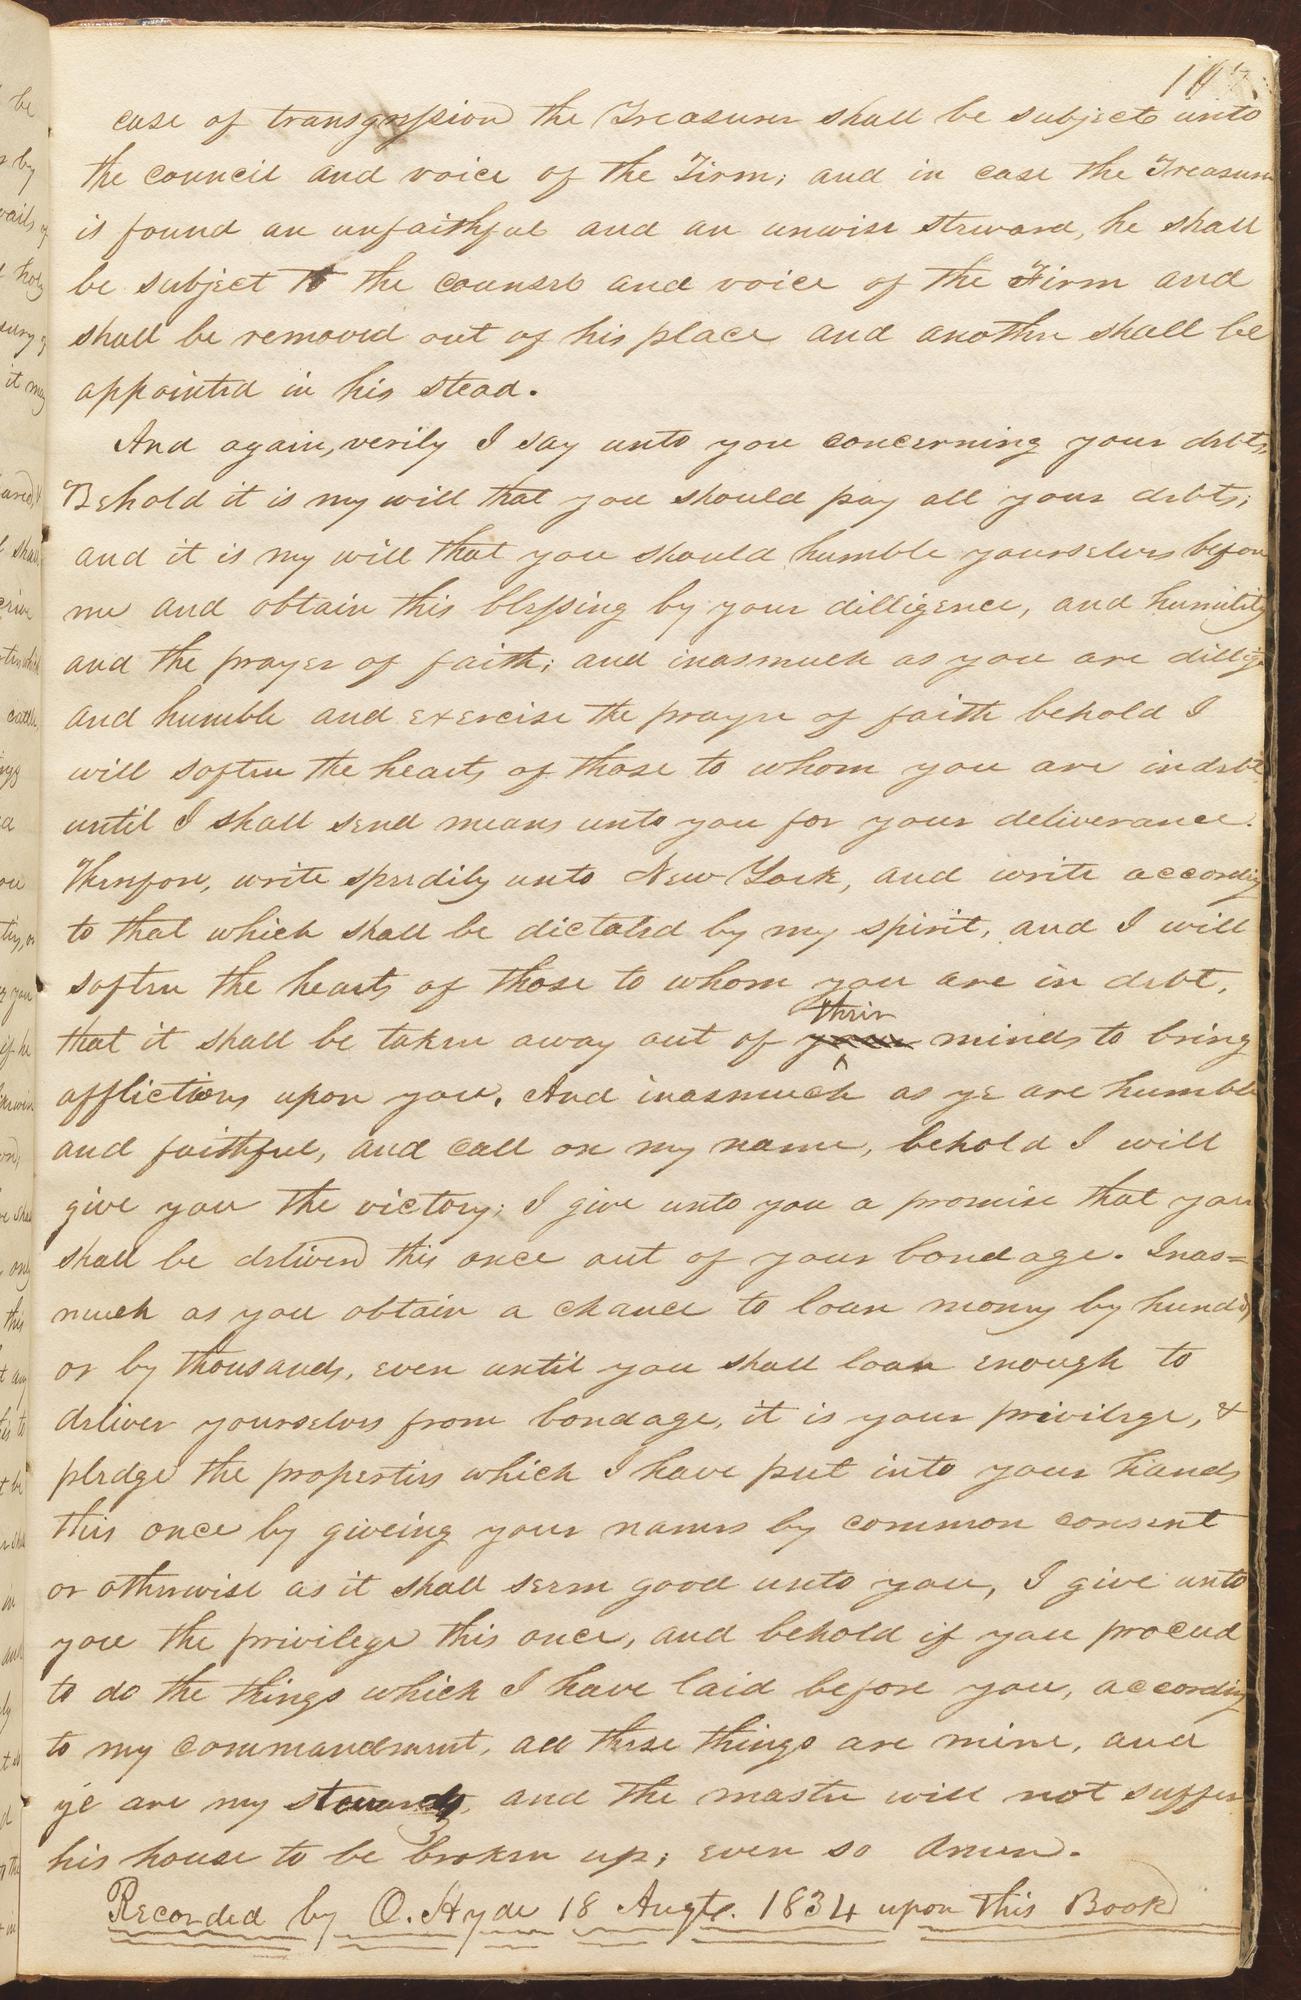 case of transgression the Treasurer shall be subject unto
the council and voice of the Firm; and in case the Treasurer
is found an unfaithful and an unwise steward, he shall
be subject to the counsel and voice of the Firm and
shall be removed out of his place and another shall be
appointed in his stead.
And again, verily I say unto you concerning your debts,
Behold it is my will that you should pay all your debts;
and it is my will that you should humble yourselves before
me and obtain this blessing by your dilligence, and humility
and the prayer of faith; and inasmuch as you are dillige
and humble and exercise the prayer of faith behold I
will soften the hearts of those to whom you are indebt
until I shall send means unto you for your deliverance.
Therefore, write speedily unto New York, and write according
to that which shall be dictated by my spirit, and I will
soften the hearts of those to whom you are in debt,
their
that it shall be taken away out of your minds to bring
afflictions upon you. And inasmuch as ye are humble
and faithful, and call on my name, behold I will
give you the victory; I give unto you a promise that you
shall be deliverd this once out of your bondage. Inas=
much as you obtain a chance to loan money by hundds
or by thousands, even until you shall loan enough to
deliver yourselves from bondage, it is your privilege, &
pledge the properties which I have put into your hands
this once by giveing your names by common consent
or otherwise as it shall seem good unto you, I give unto
you the privilege this once, and behold if you proceed
to do the things which I have laid before you, according
to my commandment, all these things are mine, and
ye are my stewards, and the master will not suffer
his house to be broken up; even so Amen.
Recorded by O. Hyde 18 Augt. 1834 upon This Book